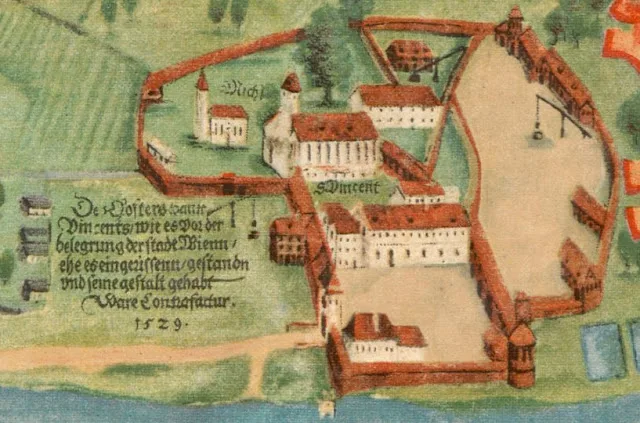 Michl
S. Vincent
De Closters sanct
Vincents, wie es vor der
belegrung der stadt Wienn /
ehe es eingerissenn / gestandn
vnd seine gestalt gehabt
Ware Contrafactur.
1529.